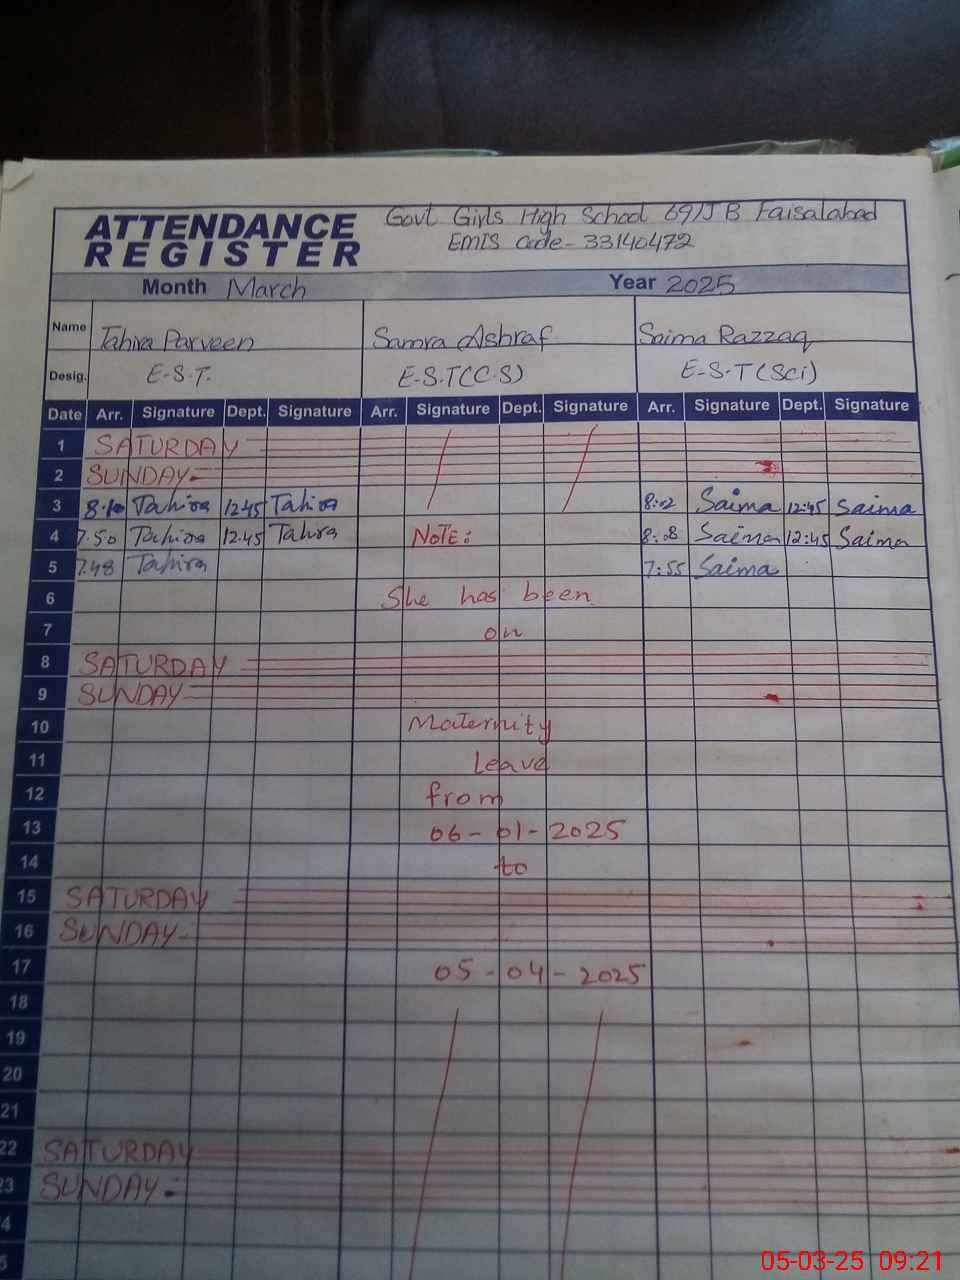 ATTENDANCE REGISTER
Govt Girls High School 69/J B Faisalabad
EMIS Code- 33140472
Month March Year 2025
Name Tahira Parveen Samra Ashraf Saima Razzaq
Desig. E-S-T. E-S-T(C-S) E-S-T (Sci)
Date Arr. Signature Dept. Signature Arr. Signature Dept. Signature Arr. Signature Dept. Signature
1 SATURDAY
2 SUNDAY
3 8.10 Tahira 12.45 Tahira 8:02 Saima 12:45 Saima
4 7.50 Tahira 12.45 Tahira NOTE: 8:08 Saima 12:45 Saima
5 7.48 Tahira 7:55 Saima
6 She has been
7 on
8 SATURDAY
9 SUNDAY
10 Maternity
11 Leave
12 from
13 06-01-2025
14 to
15 SATURDAY
16 SUNDAY
17 05-04-2025
18
19
20
21
22 SATURDAY
23 SUNDAY
4
5
05-03-25 09:21